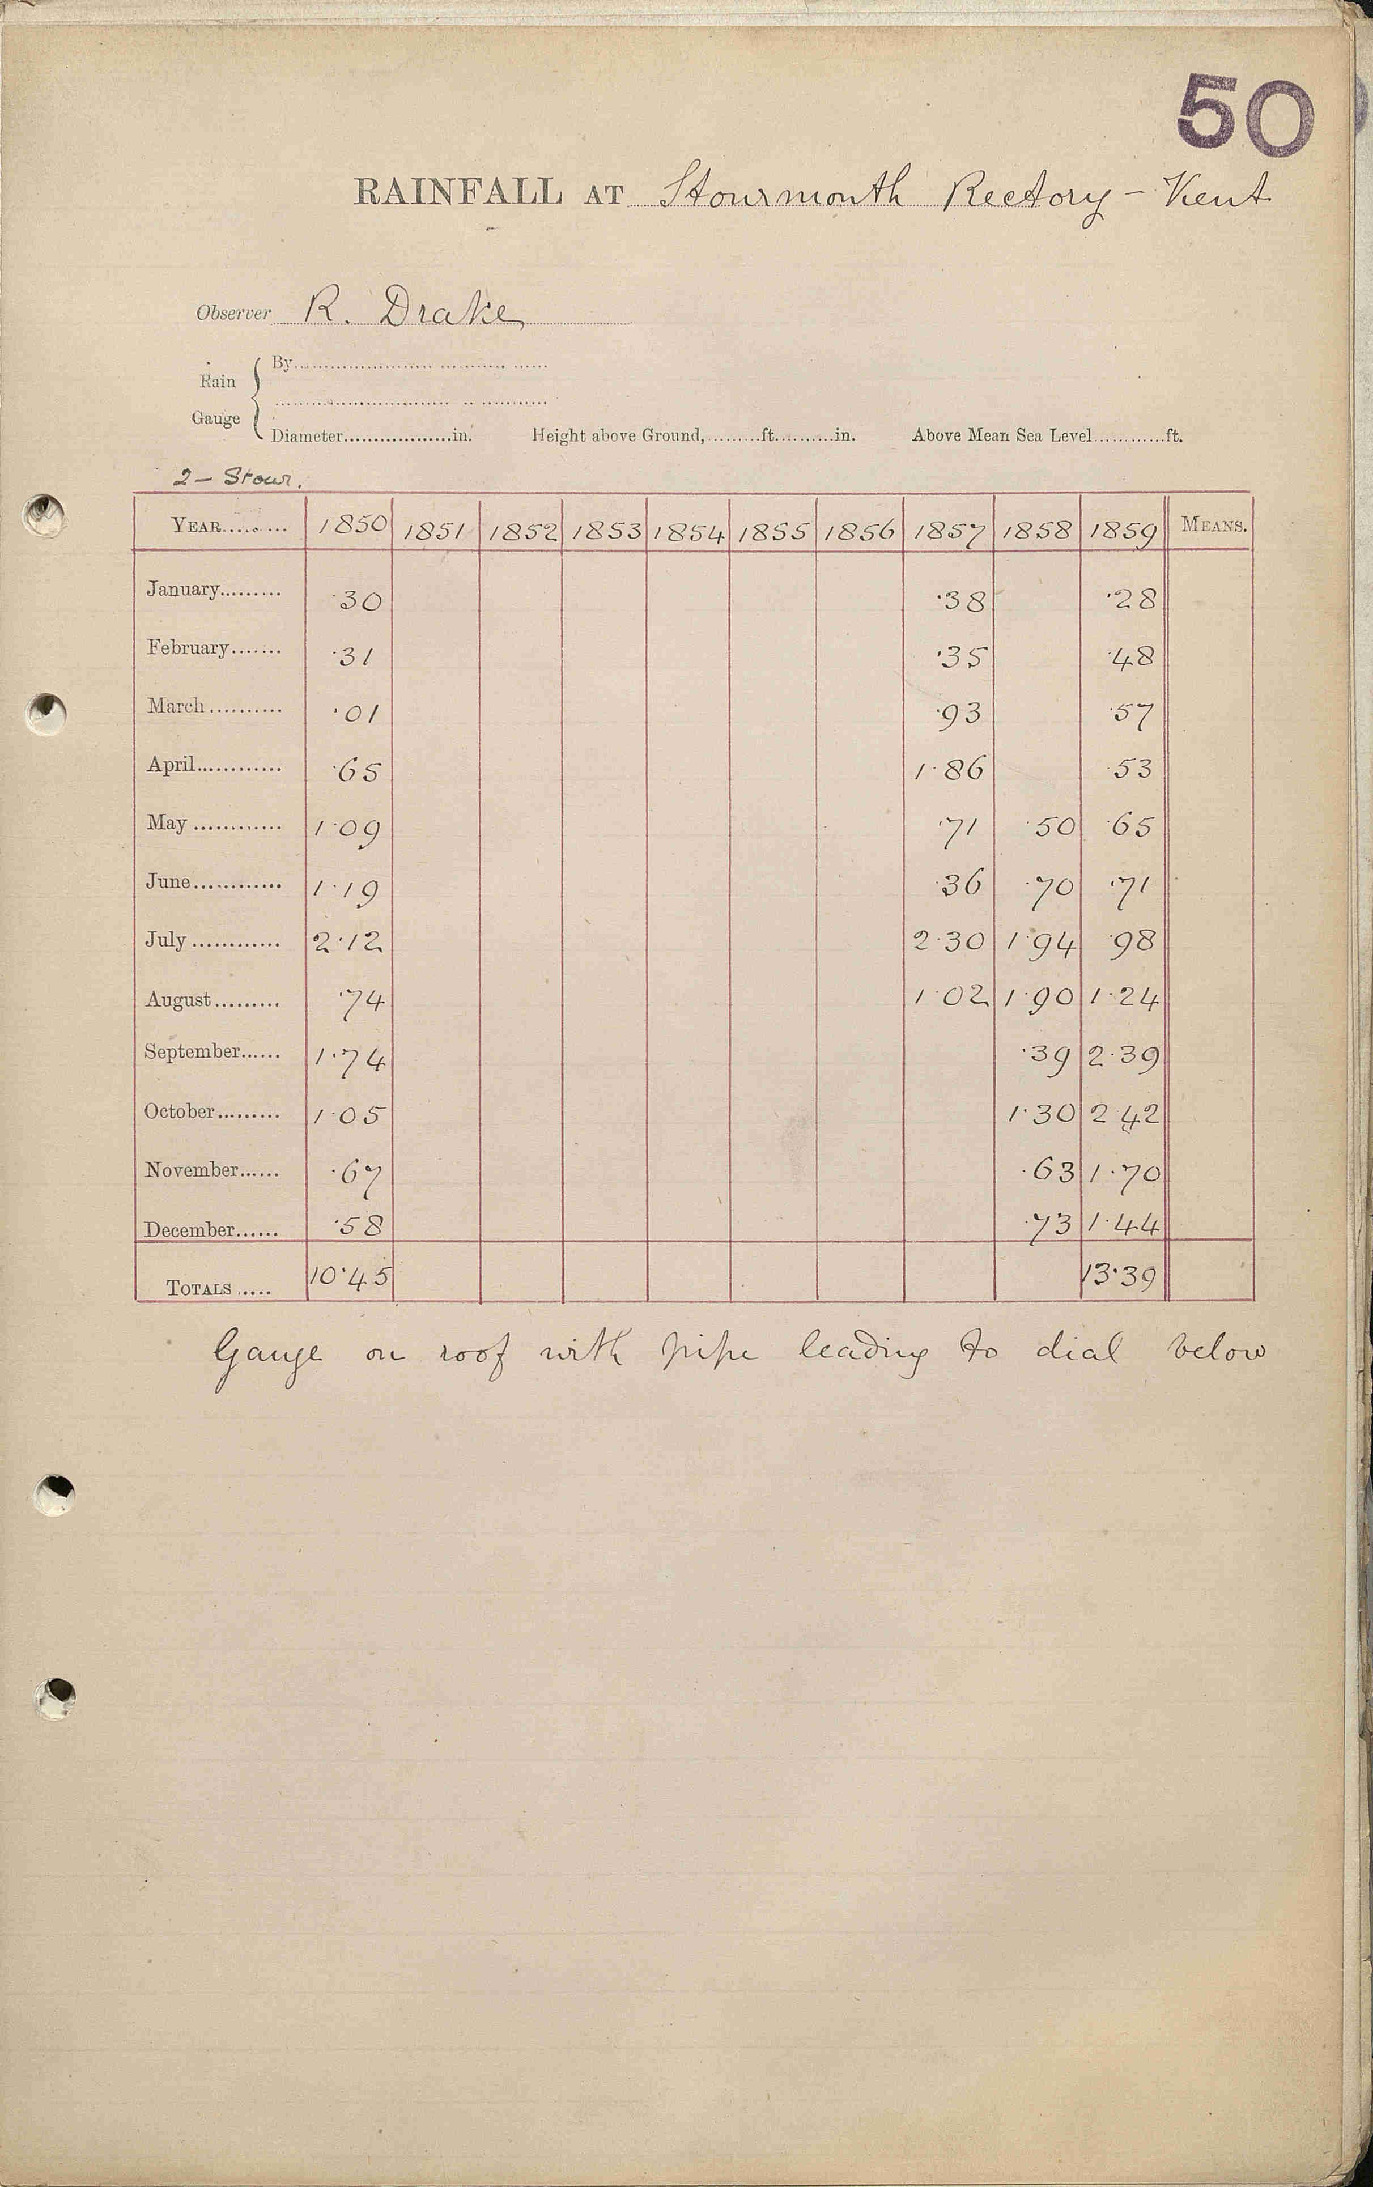 50
RAINFALL AT Stourmonth Rectory - Kent
Observer R. Drake
Rain Gauge
By
Diameter in. Height above Ground, ft. in. Above Mean Sea Level ft.
2 - Stour.
YEAR 1850 1851 1852 1853 1854 1855 1856 1857 1858 1859 MEANS.
January ·30 ·38 ·28
February ·31 ·35 ·48
March ·01 ·93 ·57
April ·65 1·86 ·53
May 1·09 ·71 ·50 ·65
June 1·19 ·36 ·70 ·71
July 2·12 2·30 1·94 ·98
August ·74 1·02 1·90 1·24
September 1·74 ·39 2·39
October 1·05 1·30 2·42
November ·67 ·63 1·70
December ·58 ·73 1·44
TOTALS 10·45 13·39
Gauge on roof with pipe leading to dial below